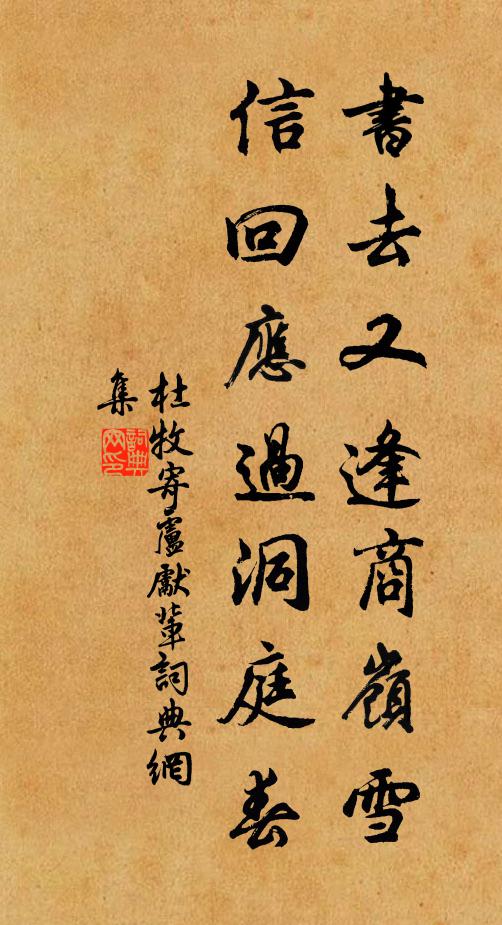 書去又逢商嶺雪
信回應過洞庭春
杜牧寄盧獻輩詞典網
集
詞典網印